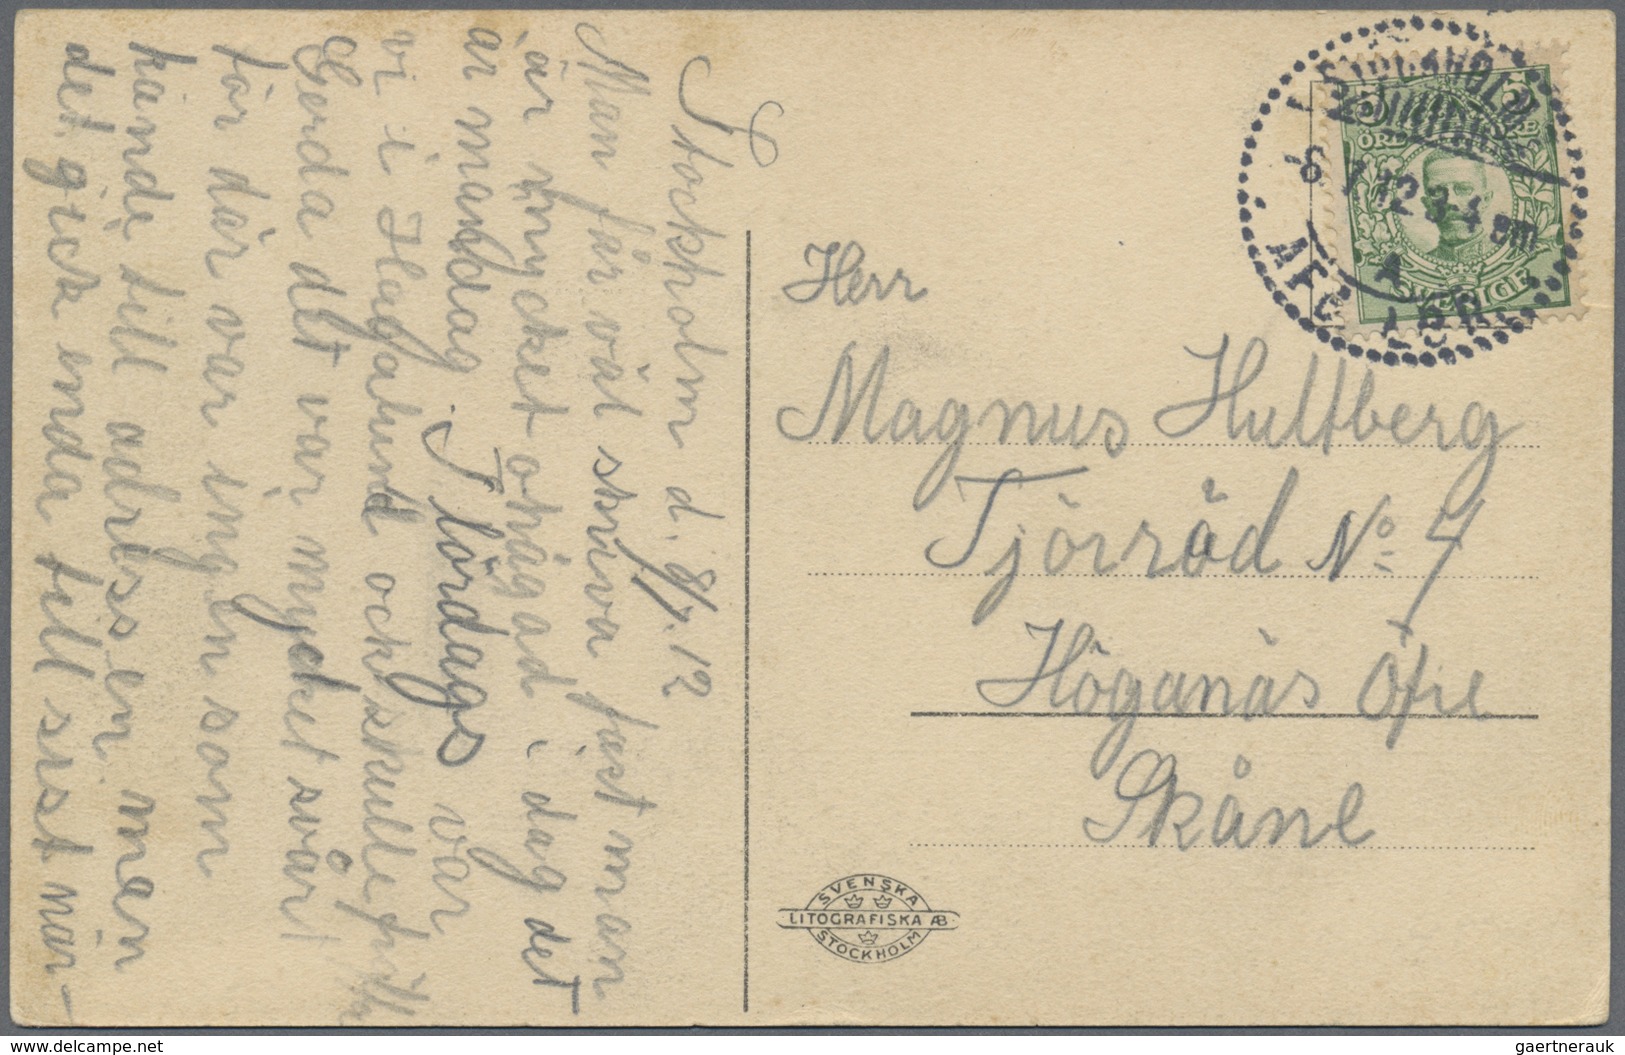 Stockholm d. 8/7.12
Man får väl skriva fast man
är mycket ohågad i dag det
är måndag. I lördags var
vi i Hagalund och skulle till
Gerda det var mycket svårt
för där var ingen som
kände till adressen men
det gick ända till sist när-
Herr
Magnus Hultberg
Tjörröd No 7
Höganäs Öfre
Skåne
STOCKHOLM
8 7 12 3-4 em
A
AFG
5 5
ÖRE
SVERIGE
SVENSKA
LITOGRAFISKA AB
STOCKHOLM
www.delcampe.net
gaertnerauk